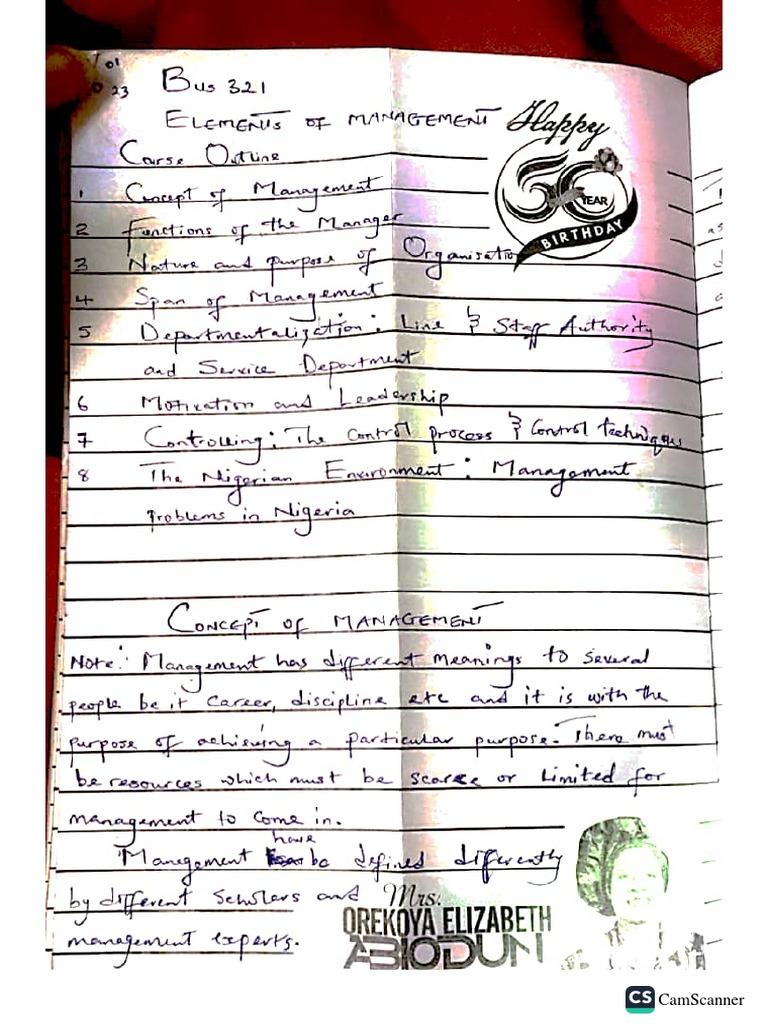 01
23
Bus 321
ELEMENTS OF MANAGEMENT
Happy
50
YEAR
BIRTHDAY
Corse Outline
1 Concept of Management
2 Functions of the Manager
3 Nature and purpose of Organisation
4 Span of Management
5 Departmentalization: Line & Staff Authority
and Service Department
6 Motivation and Leadership
7 Controlling: The control process & Control techniques
8 The Nigerian Environment: Management
Problems in Nigeria
CONCEPT OF MANAGEMENT
Note: Management has different meanings to several
people be it career, discipline etc and it is with the
purpose of achieving a particular purpose. There must
be resources which must be scarce or limited for
management to come in.
have
Management be defined differently
by different Scholars and
management experts.
Mrs.
OREKOYA ELIZABETH
ABIODUN
CS CamScanner